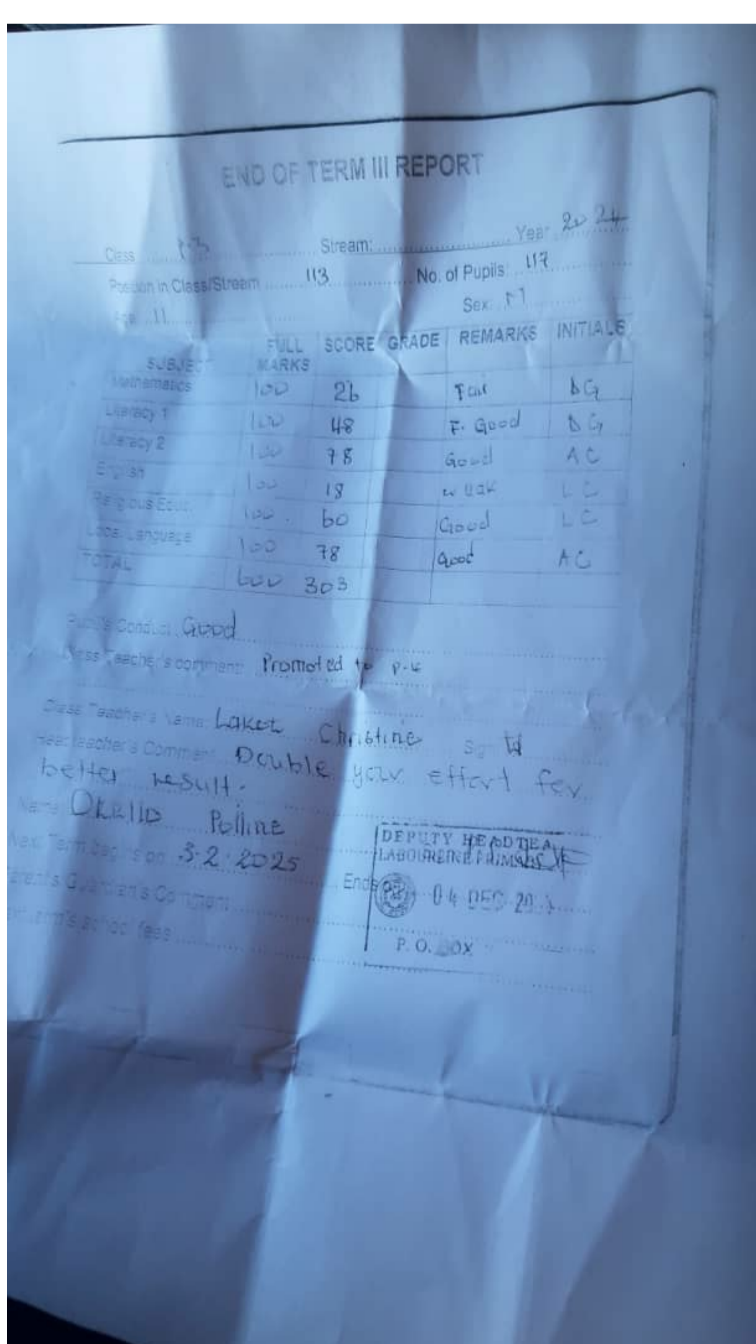 END OF TERM III REPORT
Class P.3 Stream: Year 2024
Position in Class/Stream 113 No. of Pupils: 117
Age 11 Sex: M
SUBJECT FULL MARKS SCORE GRADE REMARKS INITIALS
Mathematics 100 26 Fair DG
Literacy 1 100 48 F. Good DG
Literacy 2 100 78 Good AC
English 100 18 weak LC
Religious Educ. 100 60 Good LC
Local Language 100 78 Good AC
TOTAL 600 303
Pupil's Conduct: Good
Class Teacher's comment: Promoted to P.4
Class Teacher's Name: Laket Christine Sign
Headteacher's Comment: Double your effort for
better result.
Name: Okello Polline
Next Term begins on 3-2-2025 Ends
Parent's/Guardian's Comment
Next term's school fees
DEPUTY HEADTEA
PRIMARY
04 DEC
P. O. BOX